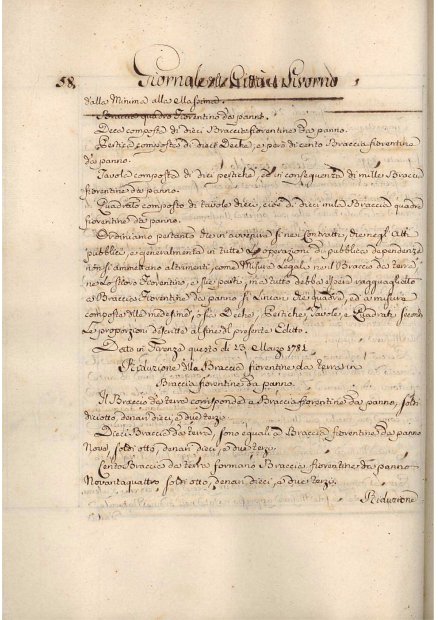 58.
Giornale di Città Livorno
dalla Minima alla Massima.
Braccio quadro Fiorentino da panno.
Deca composta di dieci Braccia fiorentine da panno.
Pertica composta di dieci Deche, e però di cento Braccia fiorentine
da panno.
Tavola composta di dieci pertiche, ed in consequenza di mille Braccia
fiorentine da panno.
Quadrato composto di tavole dieci, cioè di dieci mila Braccia quadre
fiorentine da panno.
Ordiniamo pertanto che in avvenire sì nei Contratti, che negl'Atti
pubblici, e generalmente in tutte le operazioni di pubblica dependenza
non si ammettano altrimenti, come Misura legale il Braccio da terra
nello Stato Fiorentino, e sue parti, ma tutto debba essere ragguagliato
a Braccia Fiorentine da panno sì Lineari che quadre, ed a misure
composte delle medesime, o sia Deche, Pertiche, Tavole, e Quadrati secondo
le proporzioni descritte al fine del presente Editto.
Dato in Firenze questo dì 23. Marzo 1781.
Riduzione delle Braccia fiorentine da terra in
Braccia fiorentine da panno.
Il Braccio da terra corrisponde a Braccia fiorentine da panno, soldi
diciotto, denari dieci, e due terzi.
Dieci Braccia da terra, sono eguali a Braccia fiorentine da panno
Nove, soldi otto, denari dieci, e due terzi.
Cento Braccia da terra formano Braccia fiorentine da panno
Novantaquattro, soldi otto, denari dieci, e due terzi.
Riduzione